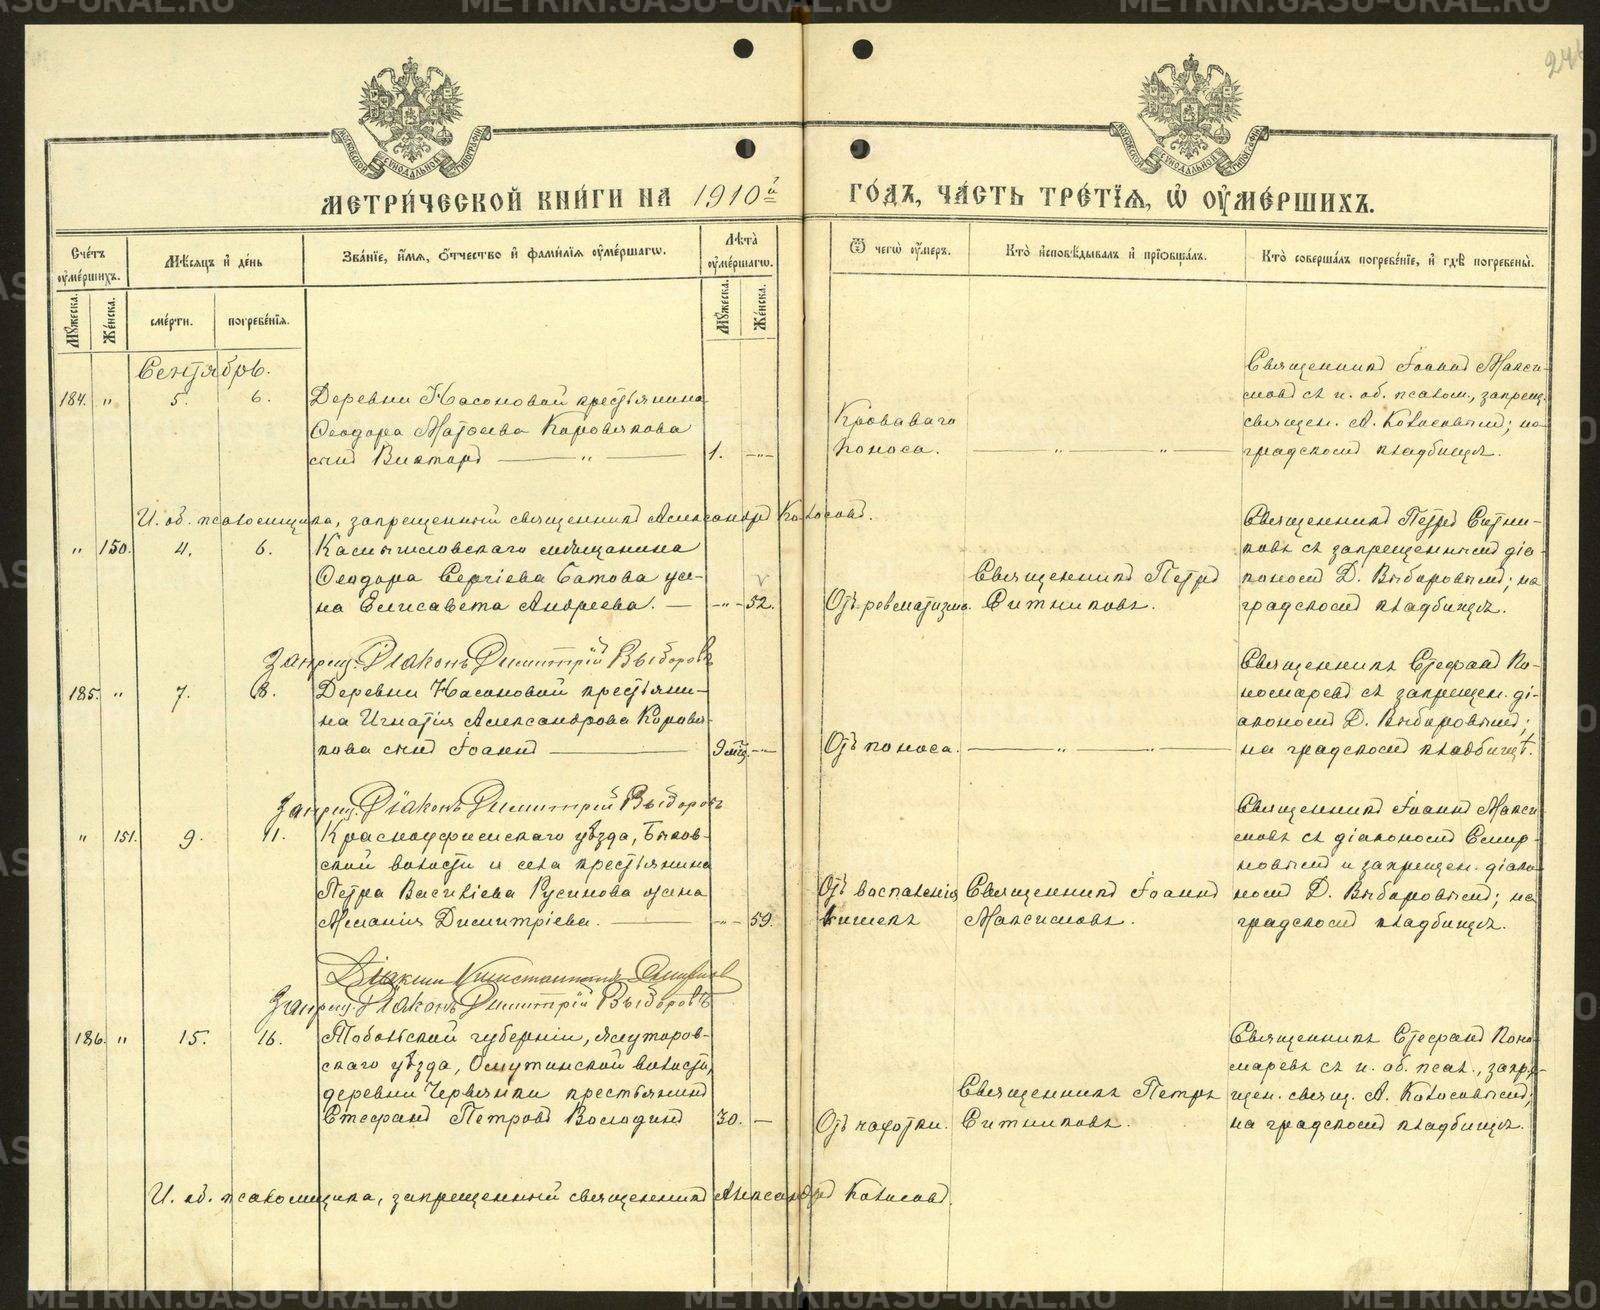 METRIKI.GASU-URAL.RU
246
МОСКОВСКОЙ СѴНОДАЛЬНОЙ ТИПОГРАФІИ
МЕТРИ́ЧЕСКОЙ КНИ́ГИ НА 1910й ГО́ДЪ, ЧА́СТЬ ТРЕ́ТІѦ, Ѽ ОУ҆МЕ́РШИХЪ.
Сче́тъ оу҆ме́ршихъ.
Мѣ́сѧцъ и҆ де́нь
Зва́нїе, и҆́мѧ, ѻ҆́тчество и҆ фами́лїѧ оу҆ме́ршагѡ.
Лѣта̀ оу҆ме́ршагѡ.
Ѿ чегѡ̀ оу҆́меръ.
Кто̀ и҆сповѣ́дывалъ и҆ прїѡбща́лъ.
Кто̀ соверша́лъ погребе́нїе, и҆ гдѣ̀ погребены̀.
Мꙋ́жеска. Же́нска. сме́рти. погребе́нїѧ. Мꙋ́жеска. Же́нска.
Сентябрь.
184. „ 5. 6.
Деревни Насоновой крестьянина
Ѳеодора Матѳеева Коровякова
сынъ Викторъ — „ —
1. —„—
Кроваваго
поноса.
— „ — „ —
Священникъ Іоаннъ Макси-
мовъ съ и. об. псалом., запрещ.
священ. А. Колосовымъ; на
градскомъ кладбищѣ.
И. об. псаломщика, запрещенный священникъ Александръ Колосовъ.
„ 150. 4. 6.
Ѳеодора Сергіева Батова же-
на Елисавета Андреева. —
—„— 52.
Отъ ревматизма.
Священникъ Петръ
Ситниковъ.
Священникъ Петръ Ситни-
ковъ съ запрещеннымъ діа-
кономъ Д. Выборовымъ; на
градскомъ кладбищѣ.
Запрещ. Діаконъ Димитрій Выборовъ
185. „ 7. 8.
Деревни Насоновой крестьяни-
на Игнатія Александрова Коровя-
кова сынъ Іоаннъ —
9 мѣс. —„—
Отъ поноса.
— „ — „ —
Священникъ Стефанъ По-
номаревъ съ запрещен. ді-
акономъ Д. Выборовымъ;
на градскомъ кладбищѣ.
Запрещ. Діаконъ Димитрій Выборовъ
„ 151. 9. 11.
Красноуфимскаго уѣзда, Быков-
ской волости и села крестьянина
Петра Василіева Русинова жена
Меланія Димитріева. —
—„— 59.
Отъ воспаленія
кишекъ
Священникъ Іоаннъ
Максимовъ.
Священникъ Іоаннъ Макси-
мовъ съ діакономъ Смир-
новымъ и запрещен. діако-
номъ Д. Выборовымъ; на
градскомъ кладбищѣ.
Діаконъ Константинъ Смирновъ
Запрещ. Діаконъ Димитрій Выборовъ
186. „ 15. 16.
Тобольской губерніи, Ялуторов-
скаго уѣзда, Омутинской волости,
деревни Червянки крестьянинъ
Стефанъ Петровъ Володинъ
30. —
Отъ чахотки.
Священникъ Петръ
Ситниковъ.
Священникъ Стефанъ Поно-
маревъ съ и. об. псал., запре-
щен. свящ. А. Колосовымъ;
на градскомъ кладбищѣ.
И. об. псаломщика, запрещенный священникъ Александръ Колосовъ.
METRIKI.GASU-URAL.RU